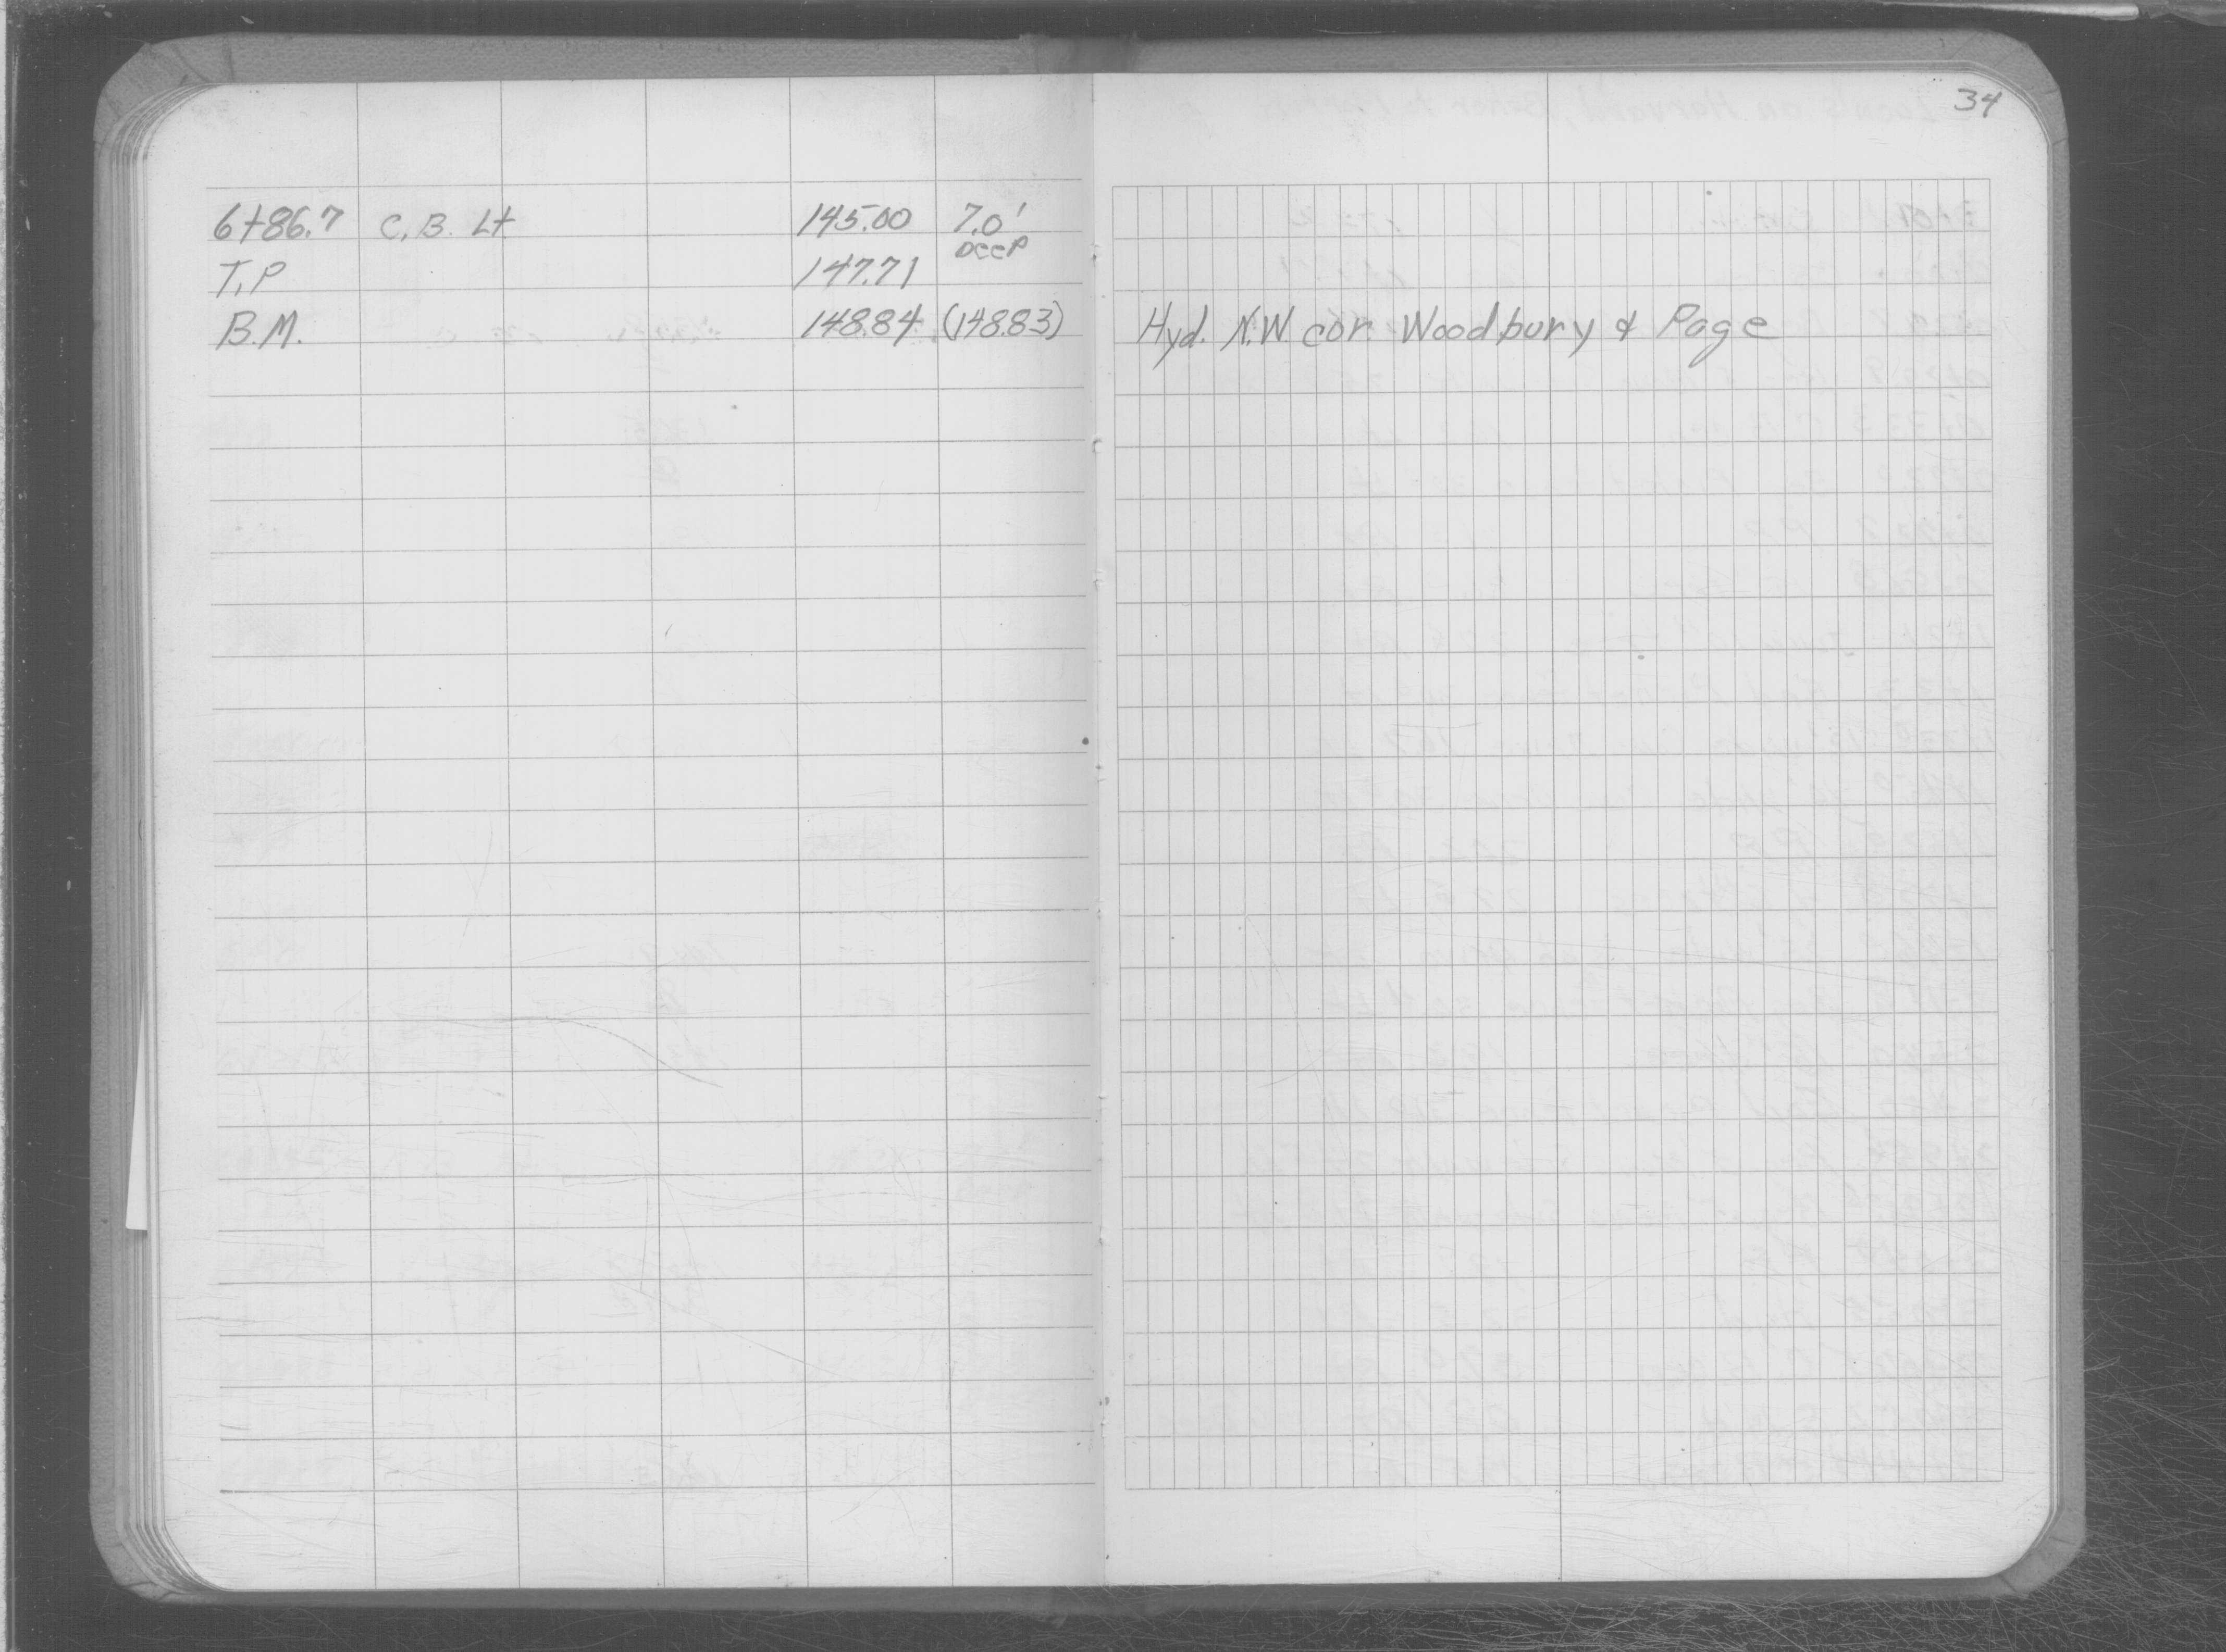 34
6+86.7 C.B. Lt 145.00 7.0' DEEP
T.P 147.71
B.M. 148.84 (148.83) Hyd. N.W. cor. Woodbury & Page